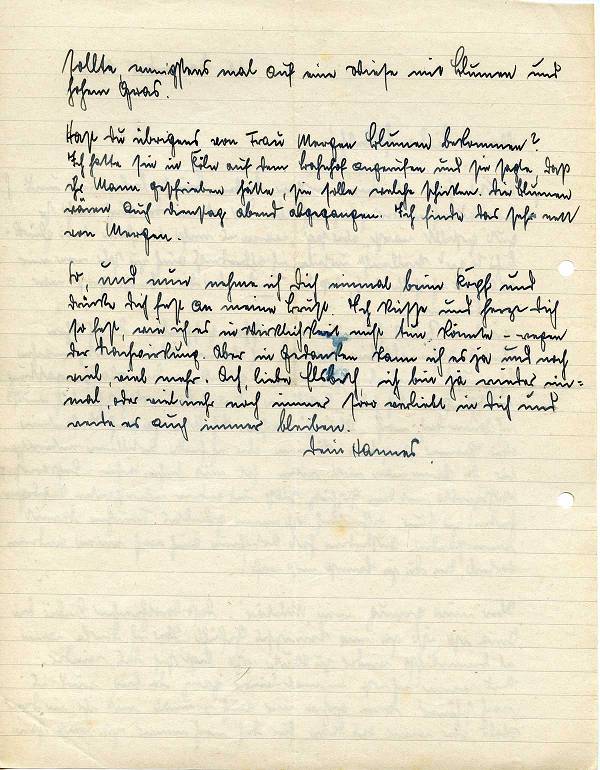 sollte, wenigstens mal auf eine Wiese mit Blumen und
hohem Gras.
Hast Du übrigens von Frau Mergen Blumen bekommen?
Ich hatte sie in Köln auf dem Bahnhof angerufen und sie sagte, daß
ihr Mann geschrieben hätte, sie solle welche schicken. Die Blumen
wären auch Dienstag abend abgegangen. Ich finde das sehr nett
von Mergen.
So, und nun nehme ich Dich einmal beim Kopf und
drücke Dich fest an meine Brust. Ich küsse und herze Dich
so fest, wie ich es in Wirklichkeit nicht tun könnte – wegen
der Nachwirkung. Aber in Gedanken kann ich es ja und noch
viel, viel mehr. Ach, liebe Elsbeth, ich bin ja wieder ein=
mal, oder viel mehr noch immer sooo verliebt in Dich und
werde es auch immer bleiben.
Dein Hannes.